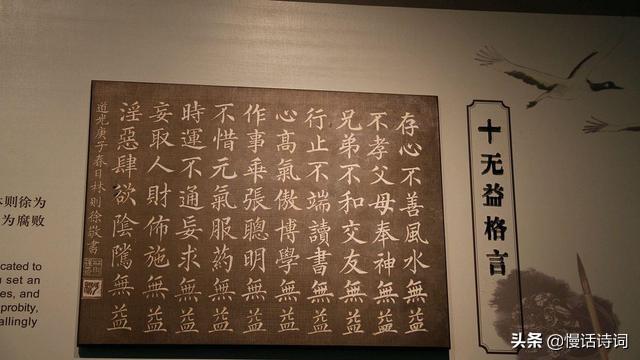 十无益格言
存心不善風水無益
不孝父母奉神無益
兄弟不和交友無益
行止不端讀書無益
心髙氣傲博學無益
作事乖張聰明無益
不惜元氣服葯無益
時運不通妄求無益
妄取人財佈施無益
淫惡肆欲陰隲無益
道光庚子春日林則徐敬書
则徐为
为腐败
cated to
set an
es, and
probity,
allingly
头条 @慢话诗词